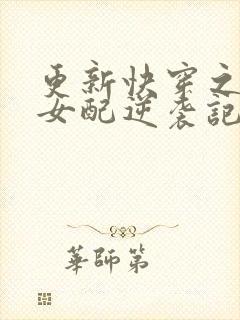 更新快穿之
女配逆袭記
華師第